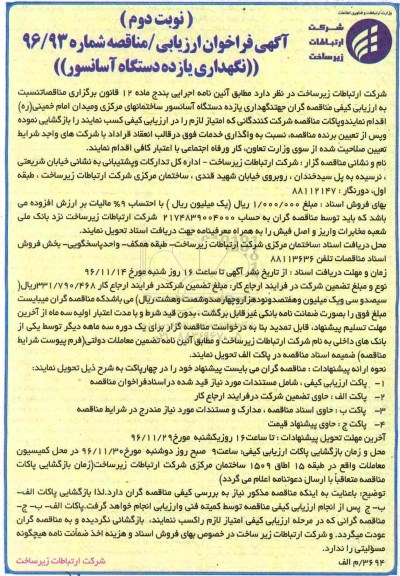 وزارت ارتباطات و فناوری اطلاعات
شرکت
ارتباطات
زیرساخت
( نوبت دوم )
آگهی فراخوان ارزیابی/مناقصه شماره ۹۶/۹۳
((نگهداری یازده دستگاه آسانسور))
شرکت ارتباطات زیرساخت در نظر دارد مطابق آئین نامه اجرایی بندج ماده ۱۲ قانون برگزاری مناقصاتنسبت
به ارزیابی کیفی مناقصه گران جهتنگهداری یازده دستگاه آسانسور ساختمانهای مرکزی ومیدان امام خمینی(ره)
اقدام نمایندوپاکات مناقصه شرکت کنندگانی که امتیاز لازم را در ارزیابی کیفی کسب نمایند را بازگشایی نموده
وپس از تعیین برنده مناقصه، نسبت به واگذاری خدمات فوق درقالب انعقاد قراداد با شرکت های واجد شرایط
تعیین صلاحیت شده از سوی وزارت تعاون، کار ورفاه اجتماعی با اعتبار کافی اقدام نمایند.
نام و نشانی مناقصه گزار : شرکت ارتباطات زیرساخت - اداره کل تدارکات وپشتیبانی به نشانی خیابان شریعتی
، نرسیده به پل سیدخندان ، روبروی خیابان شهید قندی ، ساختمان مرکزی شرکت ارتباطات زیرساخت ، طبقه
اول، دورنگار : ۸۸۱۱۲۱۴۷
بهای فروش اسناد : مبلغ ۱/۰۰۰/۰۰۰ ریال (یک میلیون ریال ) با احتساب ۹% مالیات بر ارزش افزوده می
باشد که باید توسط مناقصه گران به حساب ۲۱۷۴۸۳۹۰۰۴۰۰۰ شرکت ارتباطات زیرساخت نزد بانک ملی
شعبه مخابرات واریز و اصل فیش را به همراه معرفینامه جهت دریافت اسناد تحویل نمایند.
محل دریافت اسناد :ساختمان مرکزی شرکت ارتباطات زیرساخت- طبقه همکف- واحدپاسخگویی- بخش فروش
اسناد مناقصات تلفن ۸۸۱۱۳۶۳۶
زمان و مهلت دریافت اسناد : از تاریخ نشر آگهی تا ساعت ۱۶ روز شنبه مورخ ۹۶/۱۱/۱۴
نوع و مبلغ تضمین شرکت در فرایند ارجاع کار: مبلغ تضمین شرکتدر فرایند ارجاع کار ۳۳۱/۷۹۰/۴۶۸ریال(
سیصدو سی ویک میلیون وهفتصدونودهزاروچهارصدوشصت وهشت ریال) می باشدکه مناقصه گران میبایست
مبلغ فوق را بصورت ضمانت نامه بانکی غیرقابل برگشت ، بدون قید شرط و با مدت اعتبار اولیه سه ماه از آخرین
مهلت تسلیم پیشنهاد، قابل تمدید بنا به درخواست مناقصه گزار برای یک دوره سه ماهه دیگر توسط یکی از
بانک های داخلی به نام شرکت ارتباطات زیرساخت و مطابق آئین نامه تضمین معاملات دولتی(فرم پیوست شرایط
مناقصه) ضمیمه اسناد مناقصه در پاکت الف تحویل نمایند.
نحوه ارائه پیشنهادات : مناقصه گران می بایست پیشنهاد خود را در چهارپاکت به شرح ذیل تحویل نمایند:
۱- پاکت ارزیابی کیفی ، شامل مستندات مورد نیاز قید شده دراسنادفراخوان مناقصه
۲- پاکت الف : حاوی تضمین شرکت درفرایند ارجاع کار
۳- پاکت ب : حاوی اسناد مناقصه ، مدارک و مستندات مورد نیاز مندرج در شرایط مناقصه
۴- پاکت ج : حاوی پیشنهاد قیمت
آخرین مهلت تحویل پیشنهادات : تا ساعت۱۶ روزیکشنبه مورخ۹۶/۱۱/۲۹
محل و زمان بازگشایی پاکات ارزیابی کیفی: ساعت۹ صبح روز دوشنبه مورخ۹۶/۱۱/۳۰ در محل کمیسیون
معاملات واقع در طبقه ۱۵ اطاق ۱۵۰۹ ساختمان مرکزی شرکت ارتباطات زیرساخت(زمان بازگشایی پاکات
مناقصه متعاقباً با ارسال دعوتنامه اعلام می گردد)
توضیح: باعنایت به اینکه مناقصه مذکور نیاز به بررسی کیفی مناقصه گران دارد.لذا بازگشایی پاکات الف-
ب- ج پس از انجام ارزیابی کیفی مناقصه توسط کمیته فنی وارزیابی انجام خواهد گرفت.پاکات- الف- ب- ج-
مناقصه گرانی که در مرحله ارزیابی کیفی امتیاز لازم راکسب ننمایند، بازگشائی نگردیده و به مناقصه گران
عودت میگردد. و شرکت زیر ساخت در خصوص بهای فروش اسناد و هزینه اخذ ضمانت نامه هیچگونه
مسؤلیتی را ندارد.
۳۶۹۴/م الف
شرکت ارتباطات زیرساخت